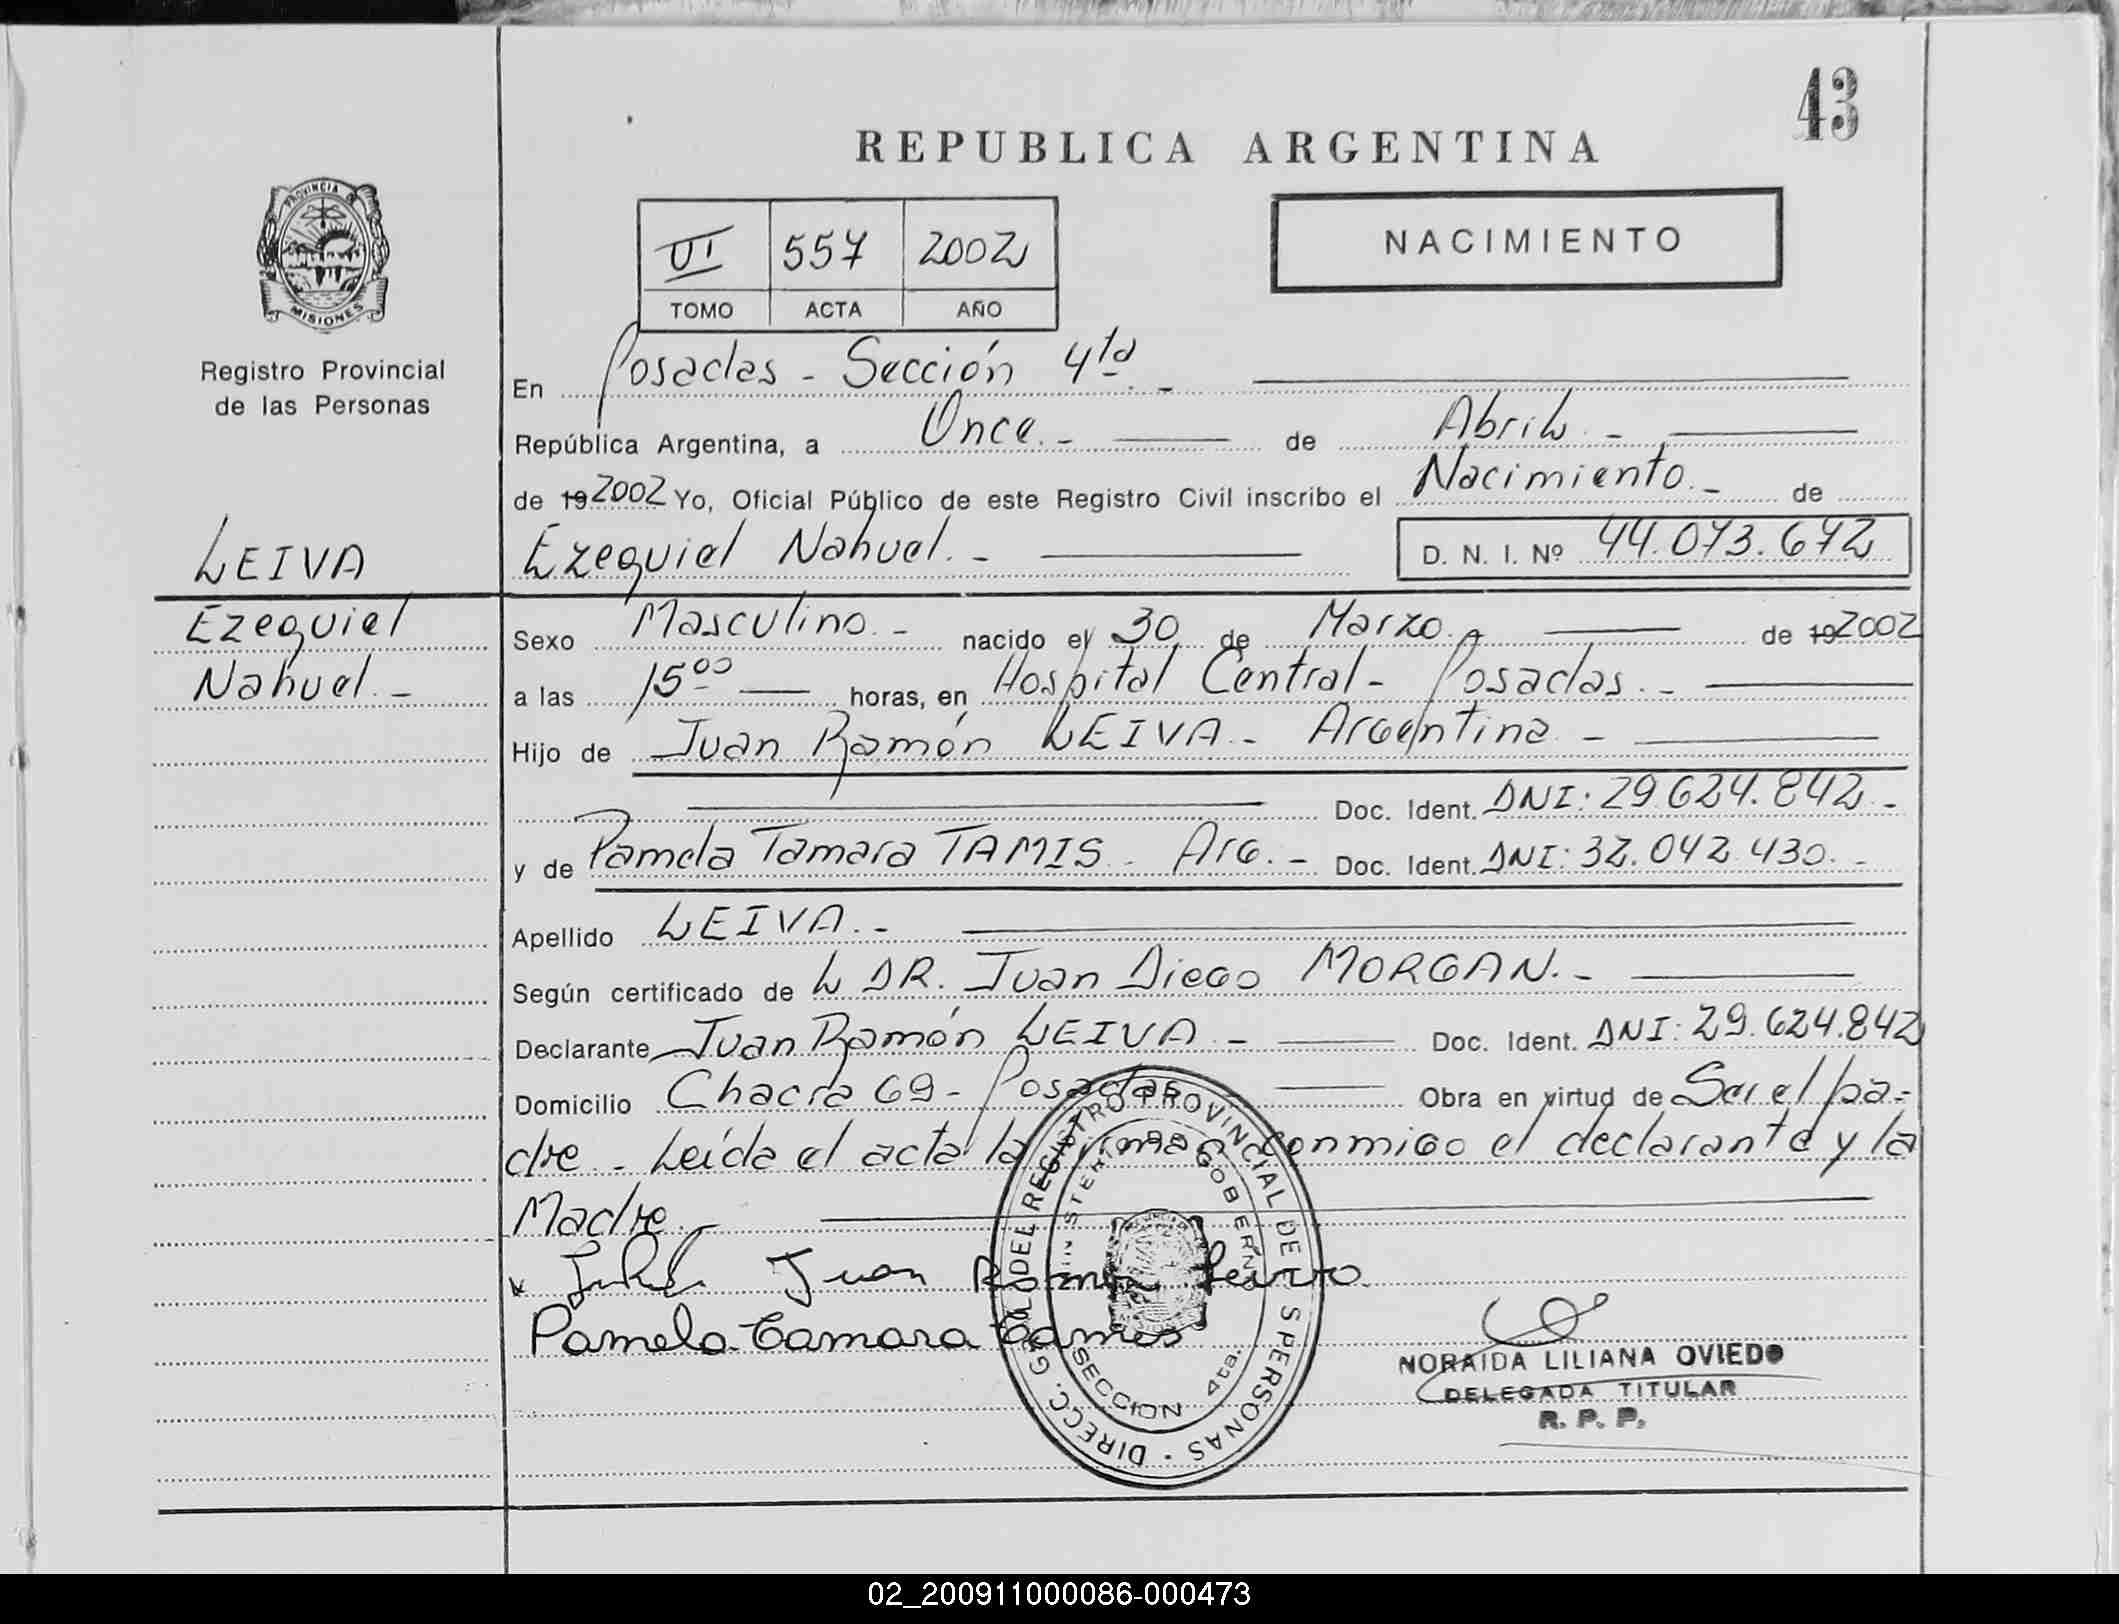 43
REPUBLICA ARGENTINA
PROVINCIA DE
MISIONES
Registro Provincial
de las Personas
VI 557 2002
TOMO ACTA AÑO
NACIMIENTO
En Posadas - Sección 4ta. -
República Argentina, a Once. - de Abril. -
de 19 2002 Yo, Oficial Público de este Registro Civil inscribo el Nacimiento. - de
LEIVA
Ezequiel Nahuel. - D. N. I. Nº 44.073.672
Ezequiel
Nahuel. -
Sexo Masculino. - nacido el 30 de Marzo. - de 19 2002
a las 15 00 horas, en Hospital Central - Posadas. -
Hijo de Juan Ramón LEIVA. - Argentina -
Doc. Ident. DNI: 29.624.842. -
y de Pamela Tamara TAMIS. Arg. - Doc. Ident. DNI: 32.042.430. -
Apellido LEIVA. -
Según certificado de L DR. Juan Diego MORGAN. -
Declarante Juan Ramón LEIVA. - Doc. Ident. DNI: 29.624.842
Domicilio Chacra 69 - Posadas Obra en virtud de Ser el pa-
dre - Leída el acta la firman conmigo el declarante y la
Madre.
Juan Ramon Leiva
Pamela Tamara Tamis
DIRECC. GRAL DEL REGISTRO PROVINCIAL DE PERSONAS
MINISTERIO DE GOBIERNO
SECCION 4ta.
NORAIDA LILIANA OVIEDO
DELEGADA TITULAR
R. P. P.
02_200911000086-000473